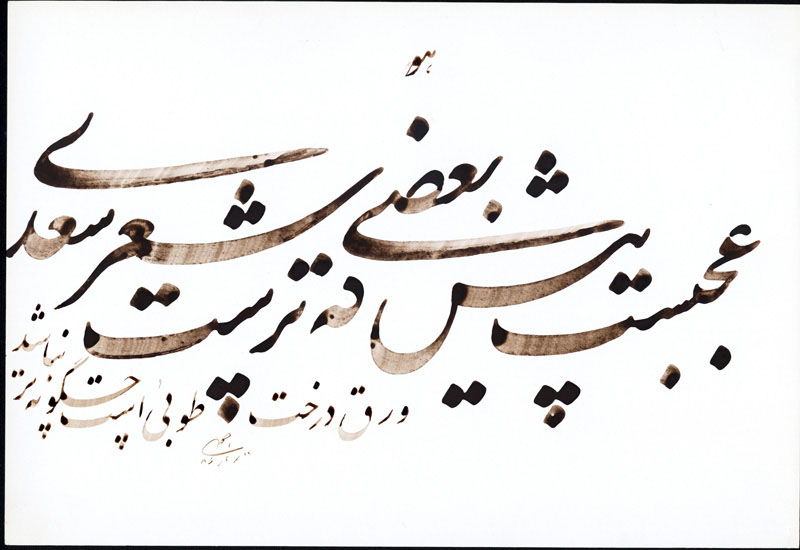 هو
عجبست پیش بعضی که ترست شعر سعدی
ورق درخت طوبی است چگونه تر نباشد